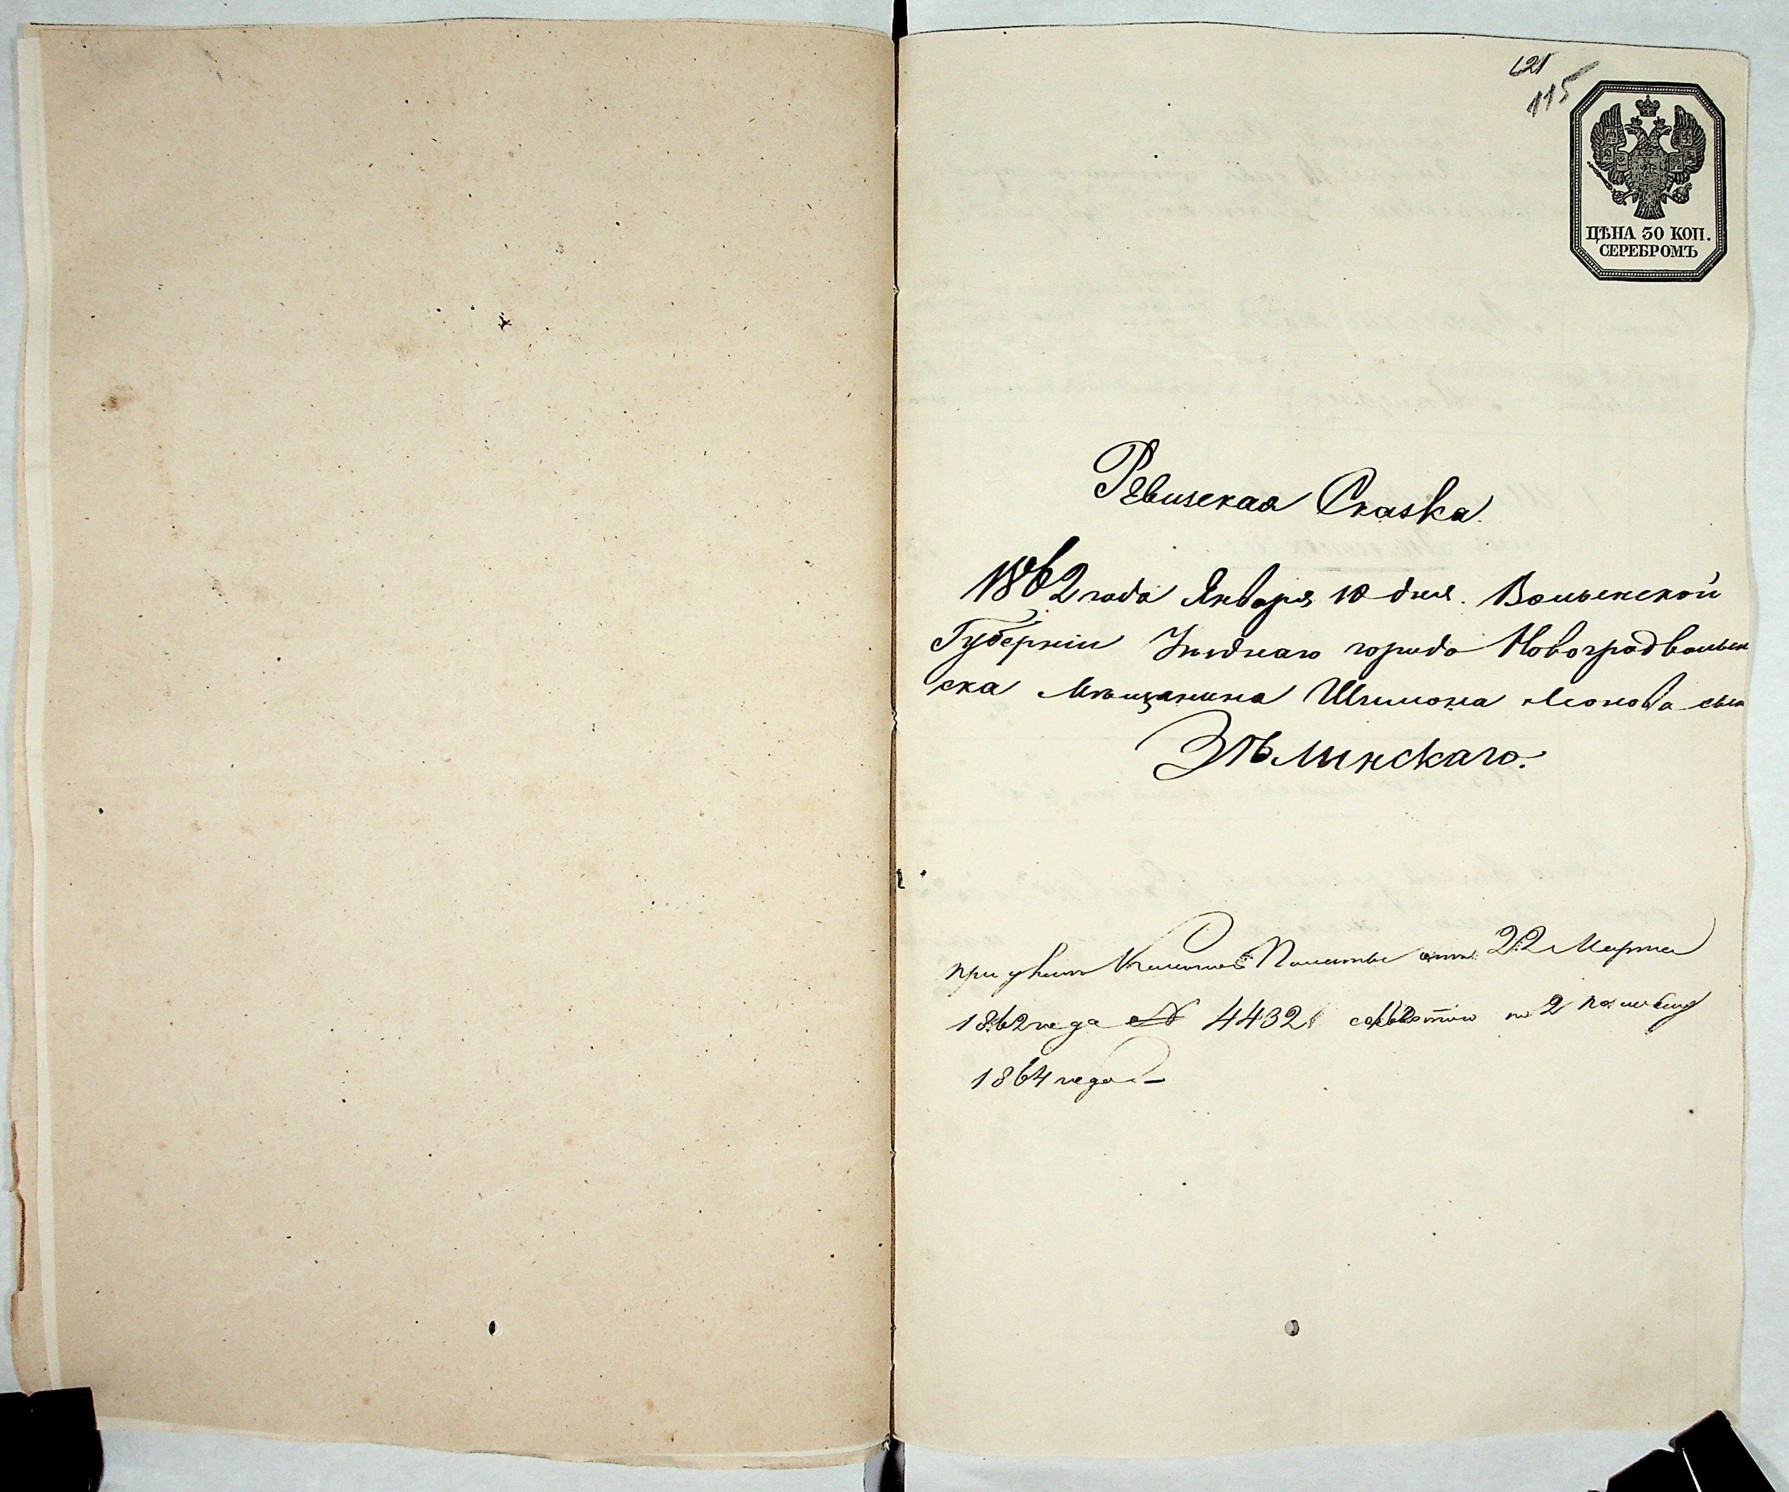 121
115
ЦѢНА 30 КОП.
СЕРЕБРОМЪ
Ревизская Сказка.
1862 года Января 10 дня. Волынской
Губерніи Уѣзднаго города Новоградволын
ска Мѣщанина Шимона Леонова сына
Зѣлинскаго.
при указѣ Казенной Палаты отъ 22 Марта
1862 года № 4432 по 2 половину
1864 года